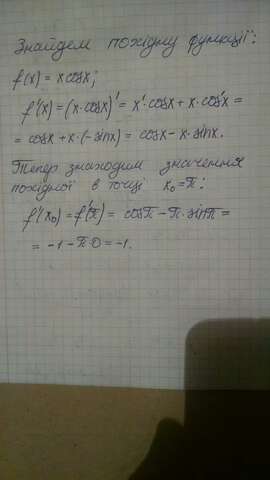 Знайдем похідну функції:
f(x) = x cosx;
f'(x) = (x · cosx)' = x' · cosx + x · cos'x =
= cosx + x · (-sinx) = cosx - x · sinx.
Тепер знаходим значення
похідної в точці x₀ = π:
f'(x₀) = f'(π) = cosπ - π · sinπ =
= -1 - π · 0 = -1.